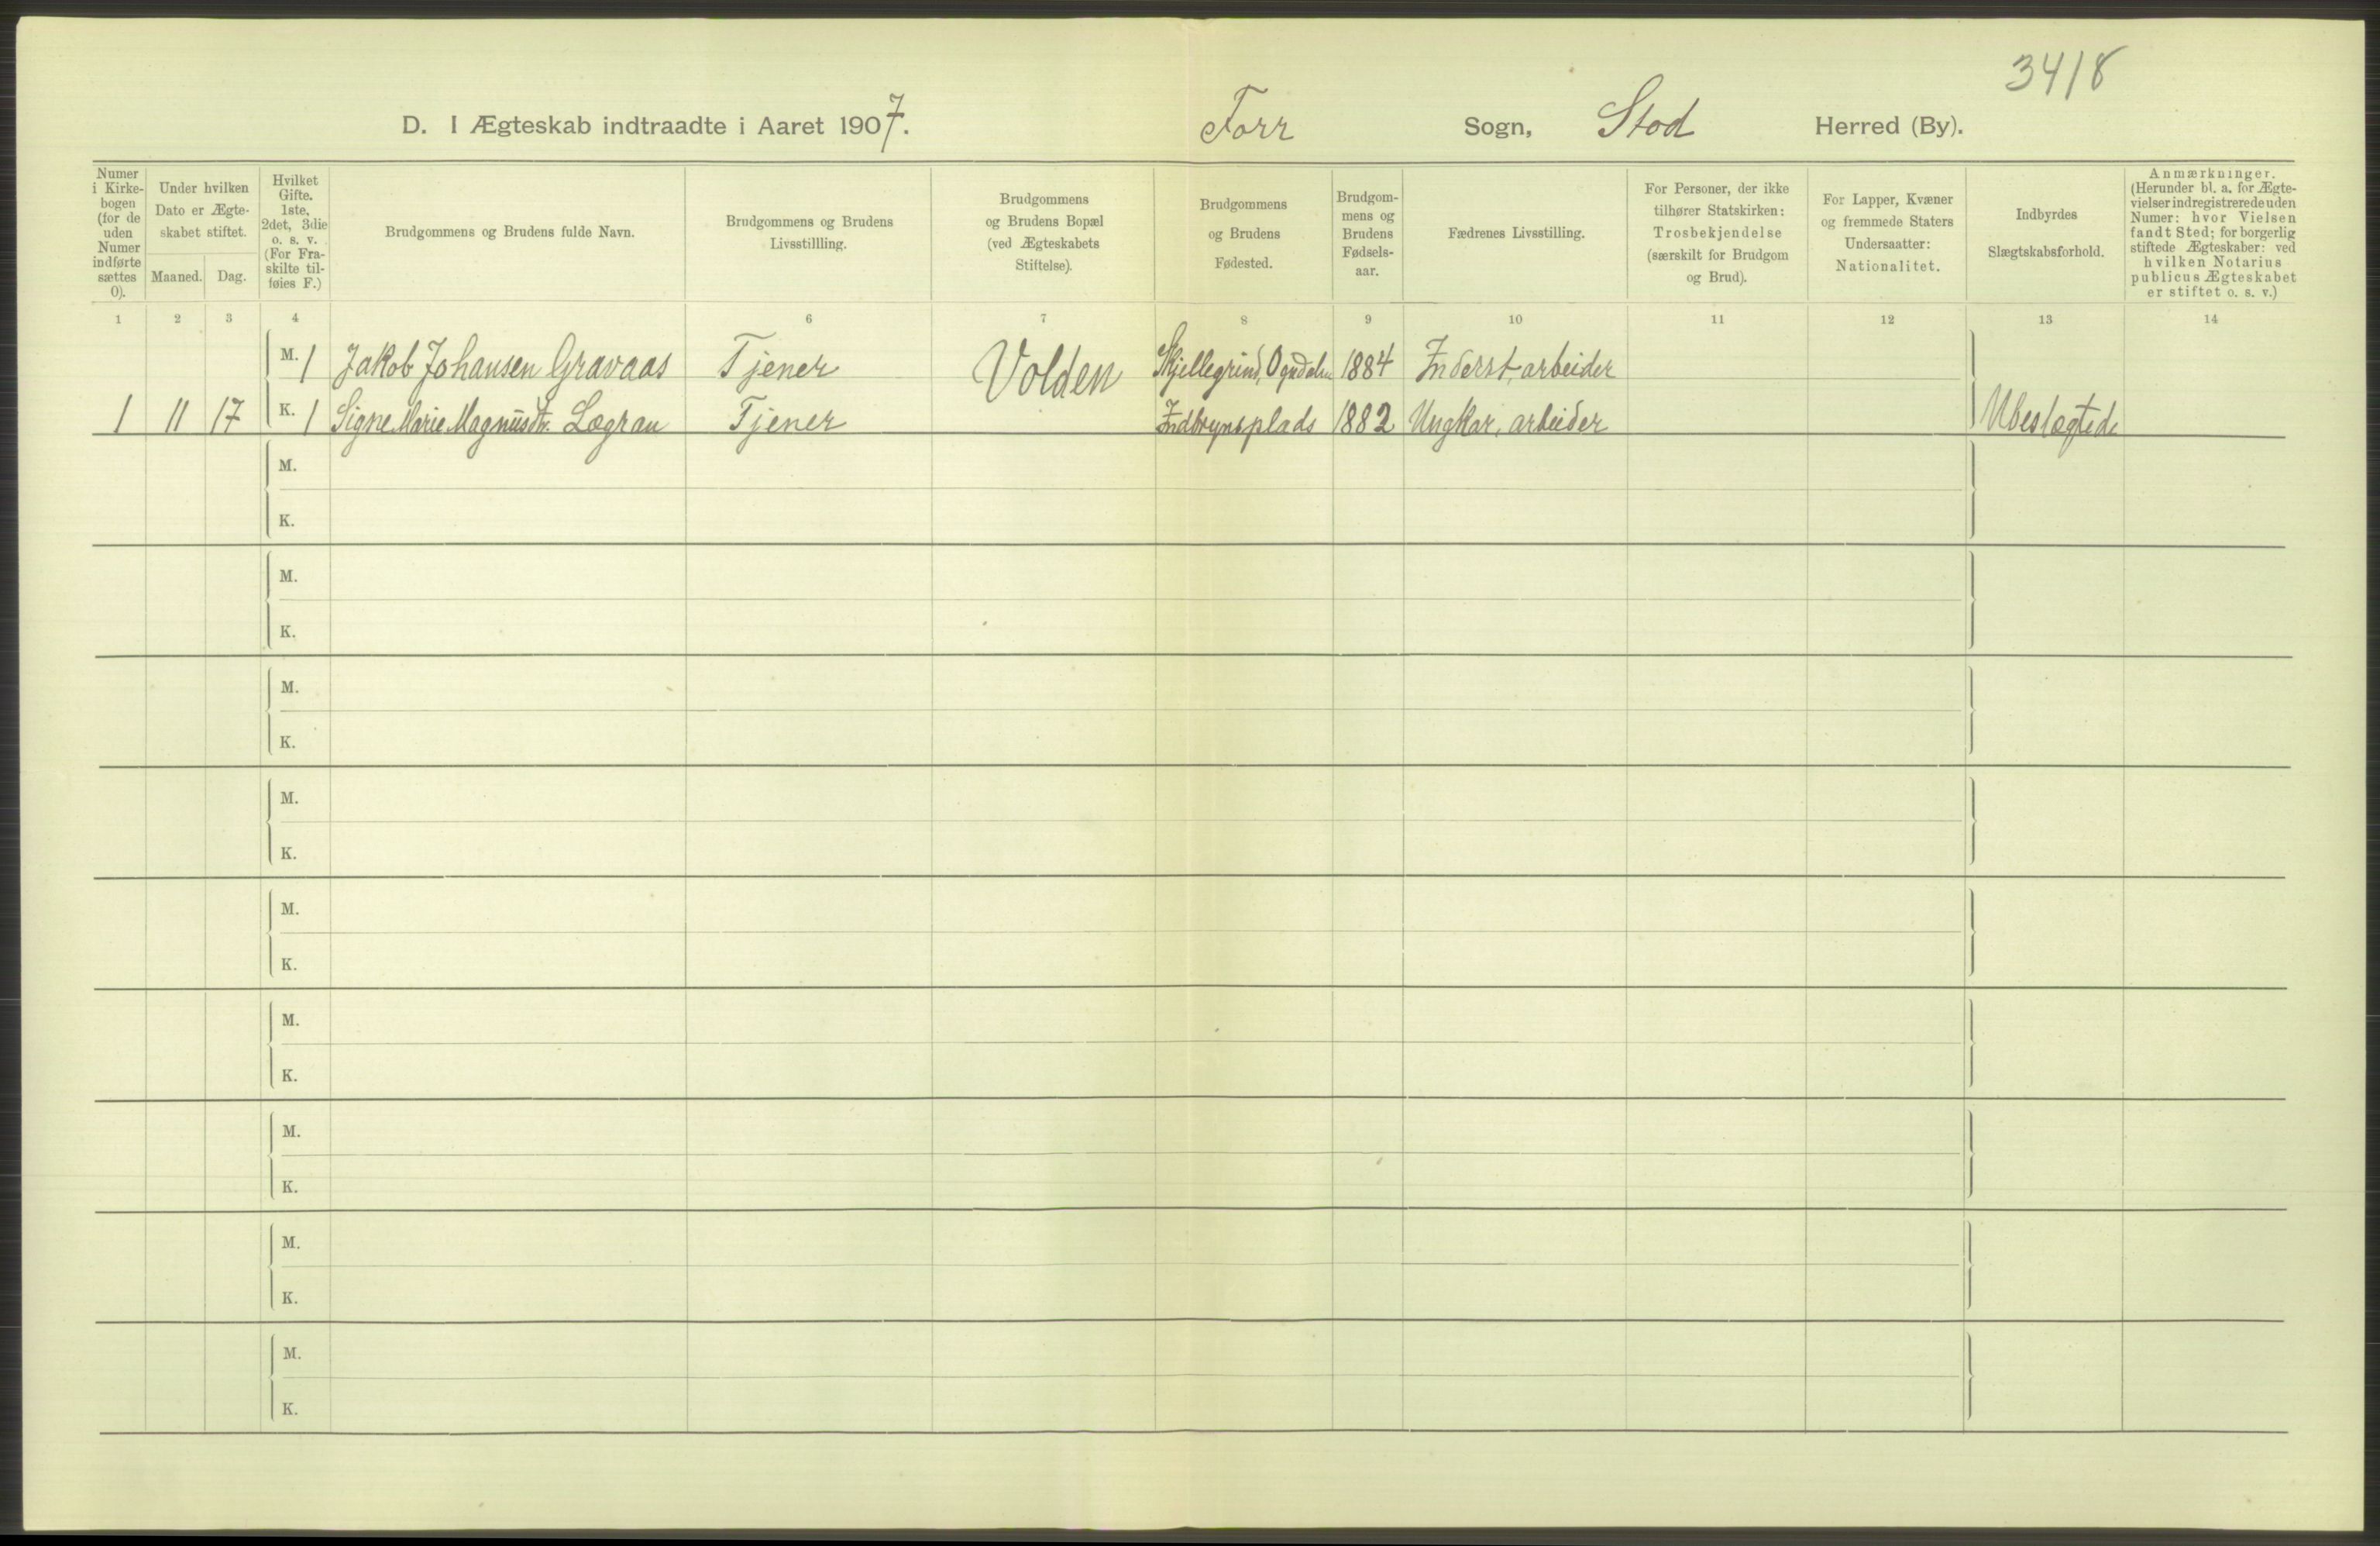 3418
D. I Ægteskab indtraadte i Aaret 1907. Forr Sogn, Stod Herred (By).
Numer
i Kirke-
bogen
(for de
uden
Numer
indførte
sættes
0).
Under hvilken
Dato er Ægte-
skabet stiftet.
Maaned. Dag.
Hvilket
Gifte.
1ste,
2det, 3die
o. s. v.
(For Fra-
skilte til-
føies F.)
Brudgommens og Brudens fulde Navn.
Brudgommens og Brudens
Livsstillling.
Brudgommens
og Brudens Bopæl
(ved Ægteskabets
Stiftelse).
Brudgommens
og Brudens
Fødested.
Brudgom-
mens og
Brudens
Fødsels-
aar.
Fædrenes Livsstilling.
For Personer, der ikke
tilhører Statskirken:
Trosbekjendelse
(særskilt for Brudgom
og Brud).
For Lapper, Kvæner
og fremmede Staters
Undersaatter:
Nationalitet.
Indbyrdes
Slægtskabsforhold.
Anmærkninger.
(Herunder bl. a. for Ægte-
vielser indregistrerede uden
Numer: hvor Vielsen
fandt Sted; for borgerlig
stiftede Ægteskaber: ved
hvilken Notarius
publicus Ægteskabet
er stiftet o. s. v.)
1 2 3 4 6 7 8 9 10 11 12 13 14
M. 1 Jakob Johansen Gravaas Tjener Volden Skjellegrind, Ogndalen 1884 Inderst, arbeider
1 11 17 K. 1 Signe Marie Magnusdtr. Lægran Tjener plads 1882 Ungkar, arbeider Ubeslægtede
M.
K.
M.
K.
M.
K.
M.
K.
M.
K.
M.
K.
M.
K.
M.
K.
M.
K.